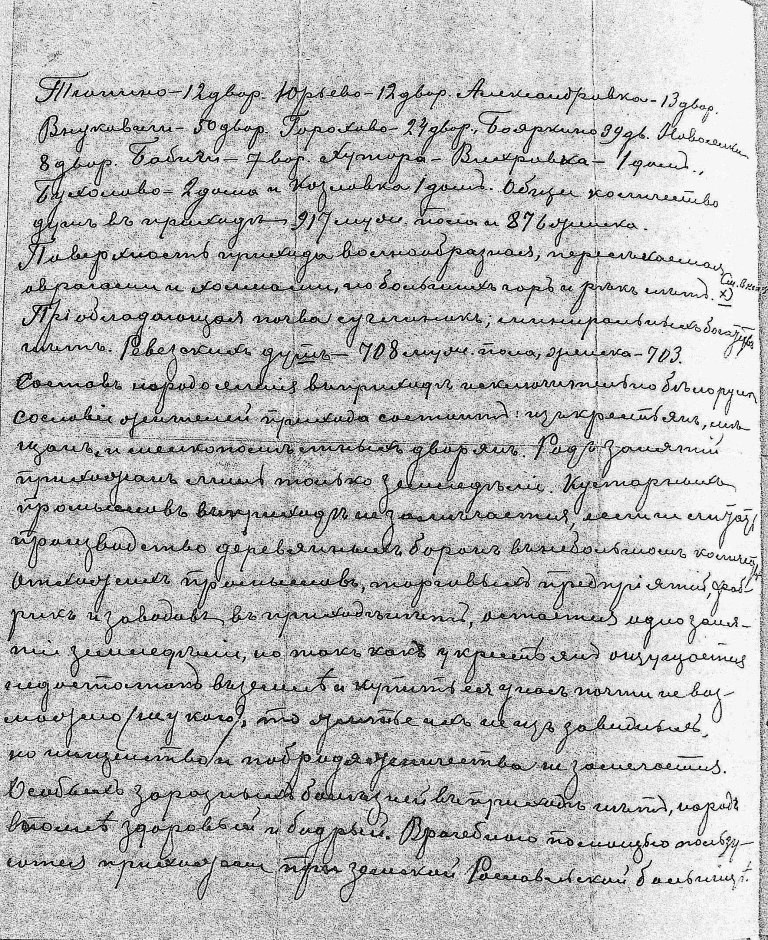 Тюпино – 12 двор. Юрьево – 12 двор. Александровка – 13 двор.
Внуковичи – 50 двор. Горохово – 24 двор., Бояркино 39 дв. Новоселки
8 двор. Бабичи – 7 вор. Хутора – Вихровка – 1 домъ.,
Бухолово – 2 дома и Козловка 1 домъ. Общее количество
душъ въ приходѣ 917 муж. пола и 876 женска.
Поверхность прихода волнообразная, пересѣкаемая
оврагами и холмами, но большихъ горъ и рѣкъ нѣтъ. х)
Преобладающая почва суглинокъ; минеральныхъ богатствъ
нѣтъ. Ревезскихъ душъ – 708 муж. пола, женска – 703.
Составъ народонаселенія въ приходѣ исключительно бѣлоруссы
сословія жителей прихода состоитъ: изъ крестьянъ, мѣ-
щанъ, и мелкопомѣстныхъ дворянъ. Родъ занятій
прихожанъ лишь только земледѣліе. Кустарныхъ
промысловъ въ приходѣ не замѣчается, если не считать
производство деревянныхъ боронъ въ небольшомъ количествѣ
Отхожихъ промысловъ, торговыхъ предпріятій, фаб-
рикъ и заводовъ въ приходѣ нѣтъ, остается одно заня-
тіе земледѣліе, но такъ какъ у крестьянъ ощущается
недостатокъ въ землѣ и купить ея у насъ почти невоз-
можно (не у кого), то житье ихъ не изъ завидныхъ,
но нищенства и побродяжничества не замечается.
Особыхъ заразныхъ болѣзней въ приходѣ нѣтъ, народъ
вполнѣ здоровый и бодрый. Врачебною помощью пользу-
ются прихожане при земской Рославльской больницѣ.